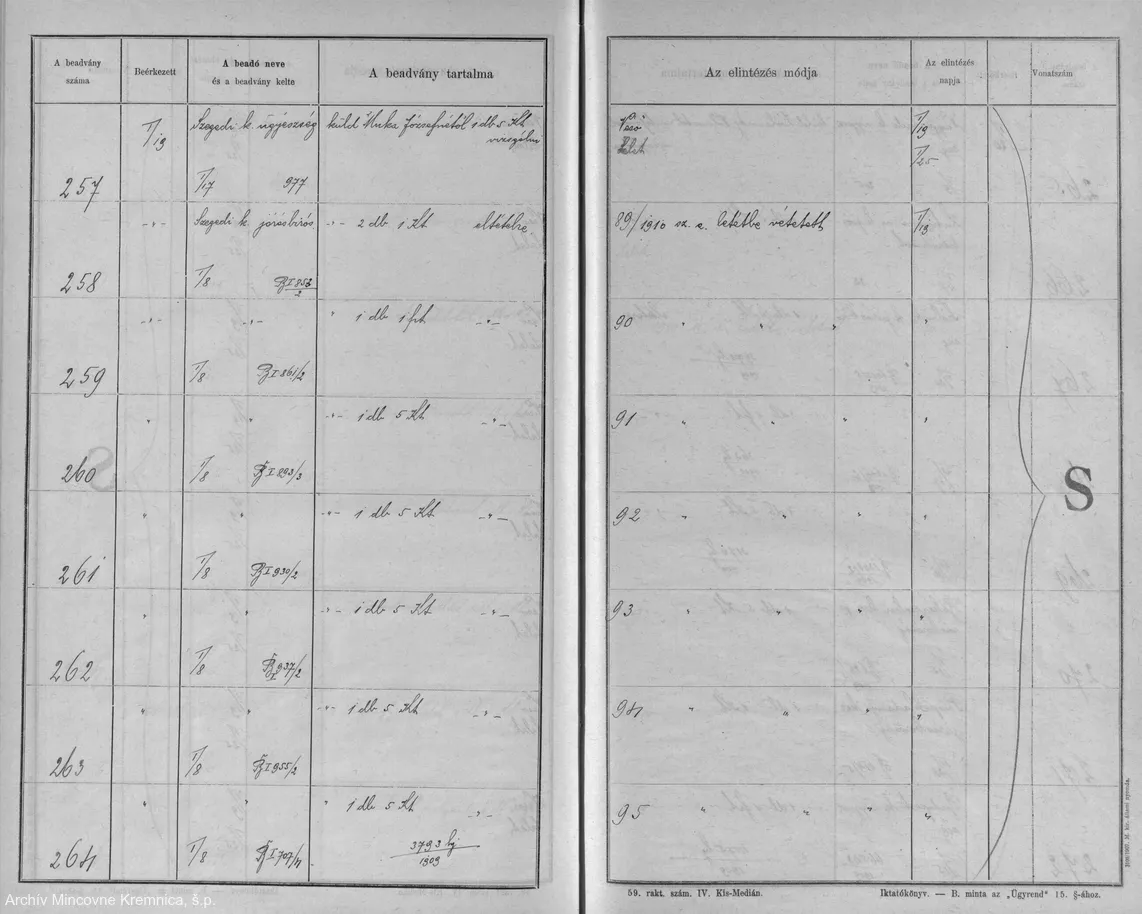 A beadvány száma
Beérkezett
A beadó neve és a beadvány kelte
A beadvány tartalma
Az elintézés módja
Az elintézés napja
Vonatszám
257
I/19
Szegedi k. ügyészség
I/17 977
küld Muka Józsefnétől 1 db 5 Kt
vizsgálni
I/19
I/25
258
-"-
Szegedi k. járásbirós
I/8
-"- 2 db 1 Kt eltételre
89/1910 sz. a. letétbe vétetett
I/19
259
-"- -"-
I/8 I 861/2
" 1 db 1 frt -"-
90 " " "
260
" "
I/8 I 893/3
-"- 1 db 5 Kt -"-
91 " " " "
261
" "
I/8 I 930/2
-"- 1 db 5 Kt -"-
92 " " " "
262
" "
I/8 937/2
-"- 1 db 5 Kt -"-
93 " " " "
263
" "
I/8 I 955/2
-"- 1 db 5 Kt -"-
94 " " " "
264
" "
I/8
" 1 db 5 Kt -"-
3793 bj
1909
95 " " " "
S
59. rakt. szám. IV. Kis-Medián.
Iktatókönyv. — B. minta az „Ügyrend" 15. §-ához.
Archív Mincovne Kremnica, š.p.